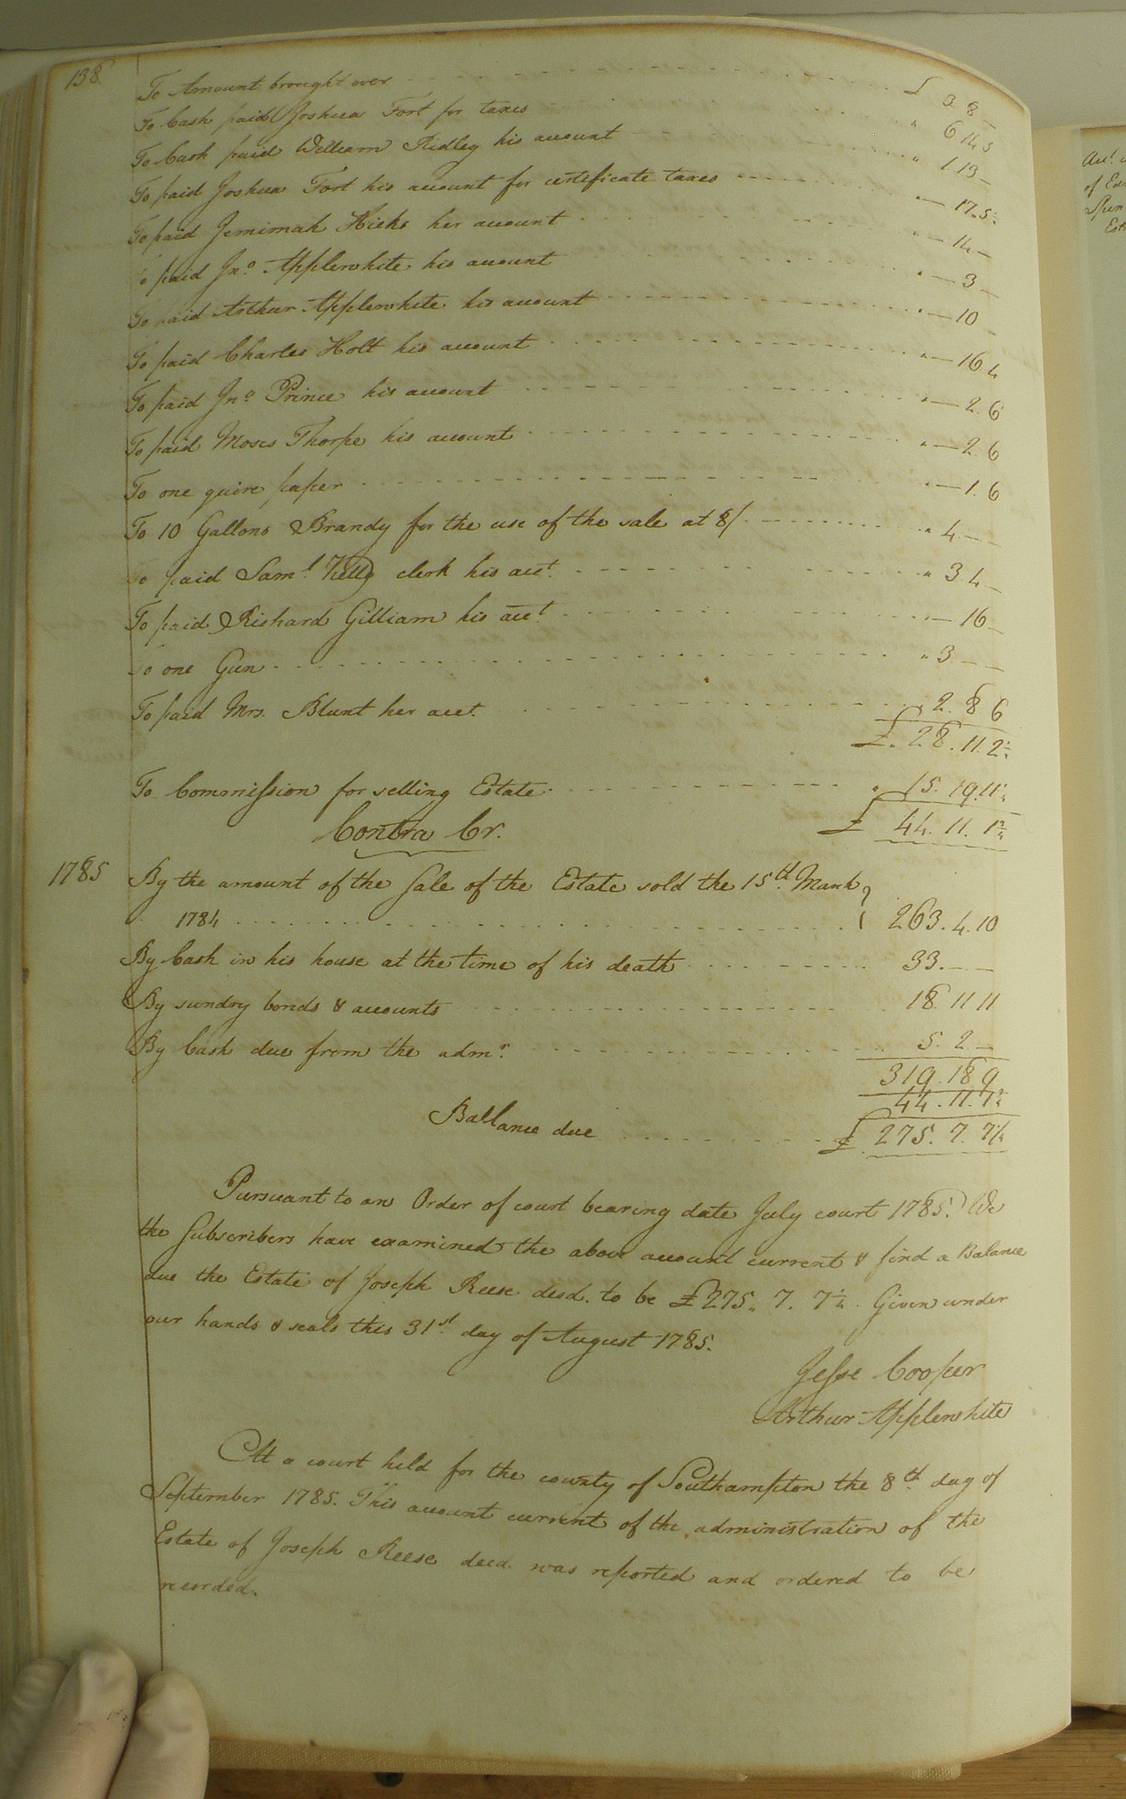 138
To Amount brought over £ 3 8 —
To Cash paid Joshua Fort for taxes " 6 14 3
To Cash paid William Ridley his account " 1 19 —
To paid Joshua Fort his account for certificate taxes " — 17. 5
To paid Jemimah Hicks her account " — 14 —
To paid Jno. Applewhite his account " — 3 —
To paid Arthur Applewhite his account " — 10 —
To paid Charles Holt his account " — 16. 4
To paid Jno. Prince his account " — 2. 6
To paid Moses Thorpe his account " — 2. 6
To one quire paper " — 1. 6
To 10 Gallons Brandy for the use of the sale at 8/ " 4 — —
To paid Saml. Kello clerk his acct. " 3 4 —
To paid Richard Gilliam his acct. " — 16 —
To one Gun " 3 — —
To paid Mrs. Blunt her acct. " 2. 8 6
£. 28. 11. 2½
To Commission for selling Estate " 15. 19. 11
Contra Cr. £ 44. 11. 1½
1785 By the amount of the Sale of the Estate sold the 15th. March
1784 263. 4. 10
By Cash in his house at the time of his death 33. — —
By sundry bonds & accounts 18. 11 11
By Cash due from the admr. 5. 2 —
319. 18 9
44. 11. 1½
Ballance due £ 275. 7. 7¼
Pursuant to an Order of court bearing date July court 1785. We
the Subscribers have examined the above account current & find a Balance
due the Estate of Joseph Reese decd. to be £275. 7. 7¼. Given under
our hands & seals this 31st. day of August 1785.
Jesse Cooper
Arthur Applewhite
At a court held for the county of Southampton the 8th. day of
September 1785. This account current of the administration of the
Estate of Joseph Reese decd. was reported and ordered to be
recorded.
Act.
of